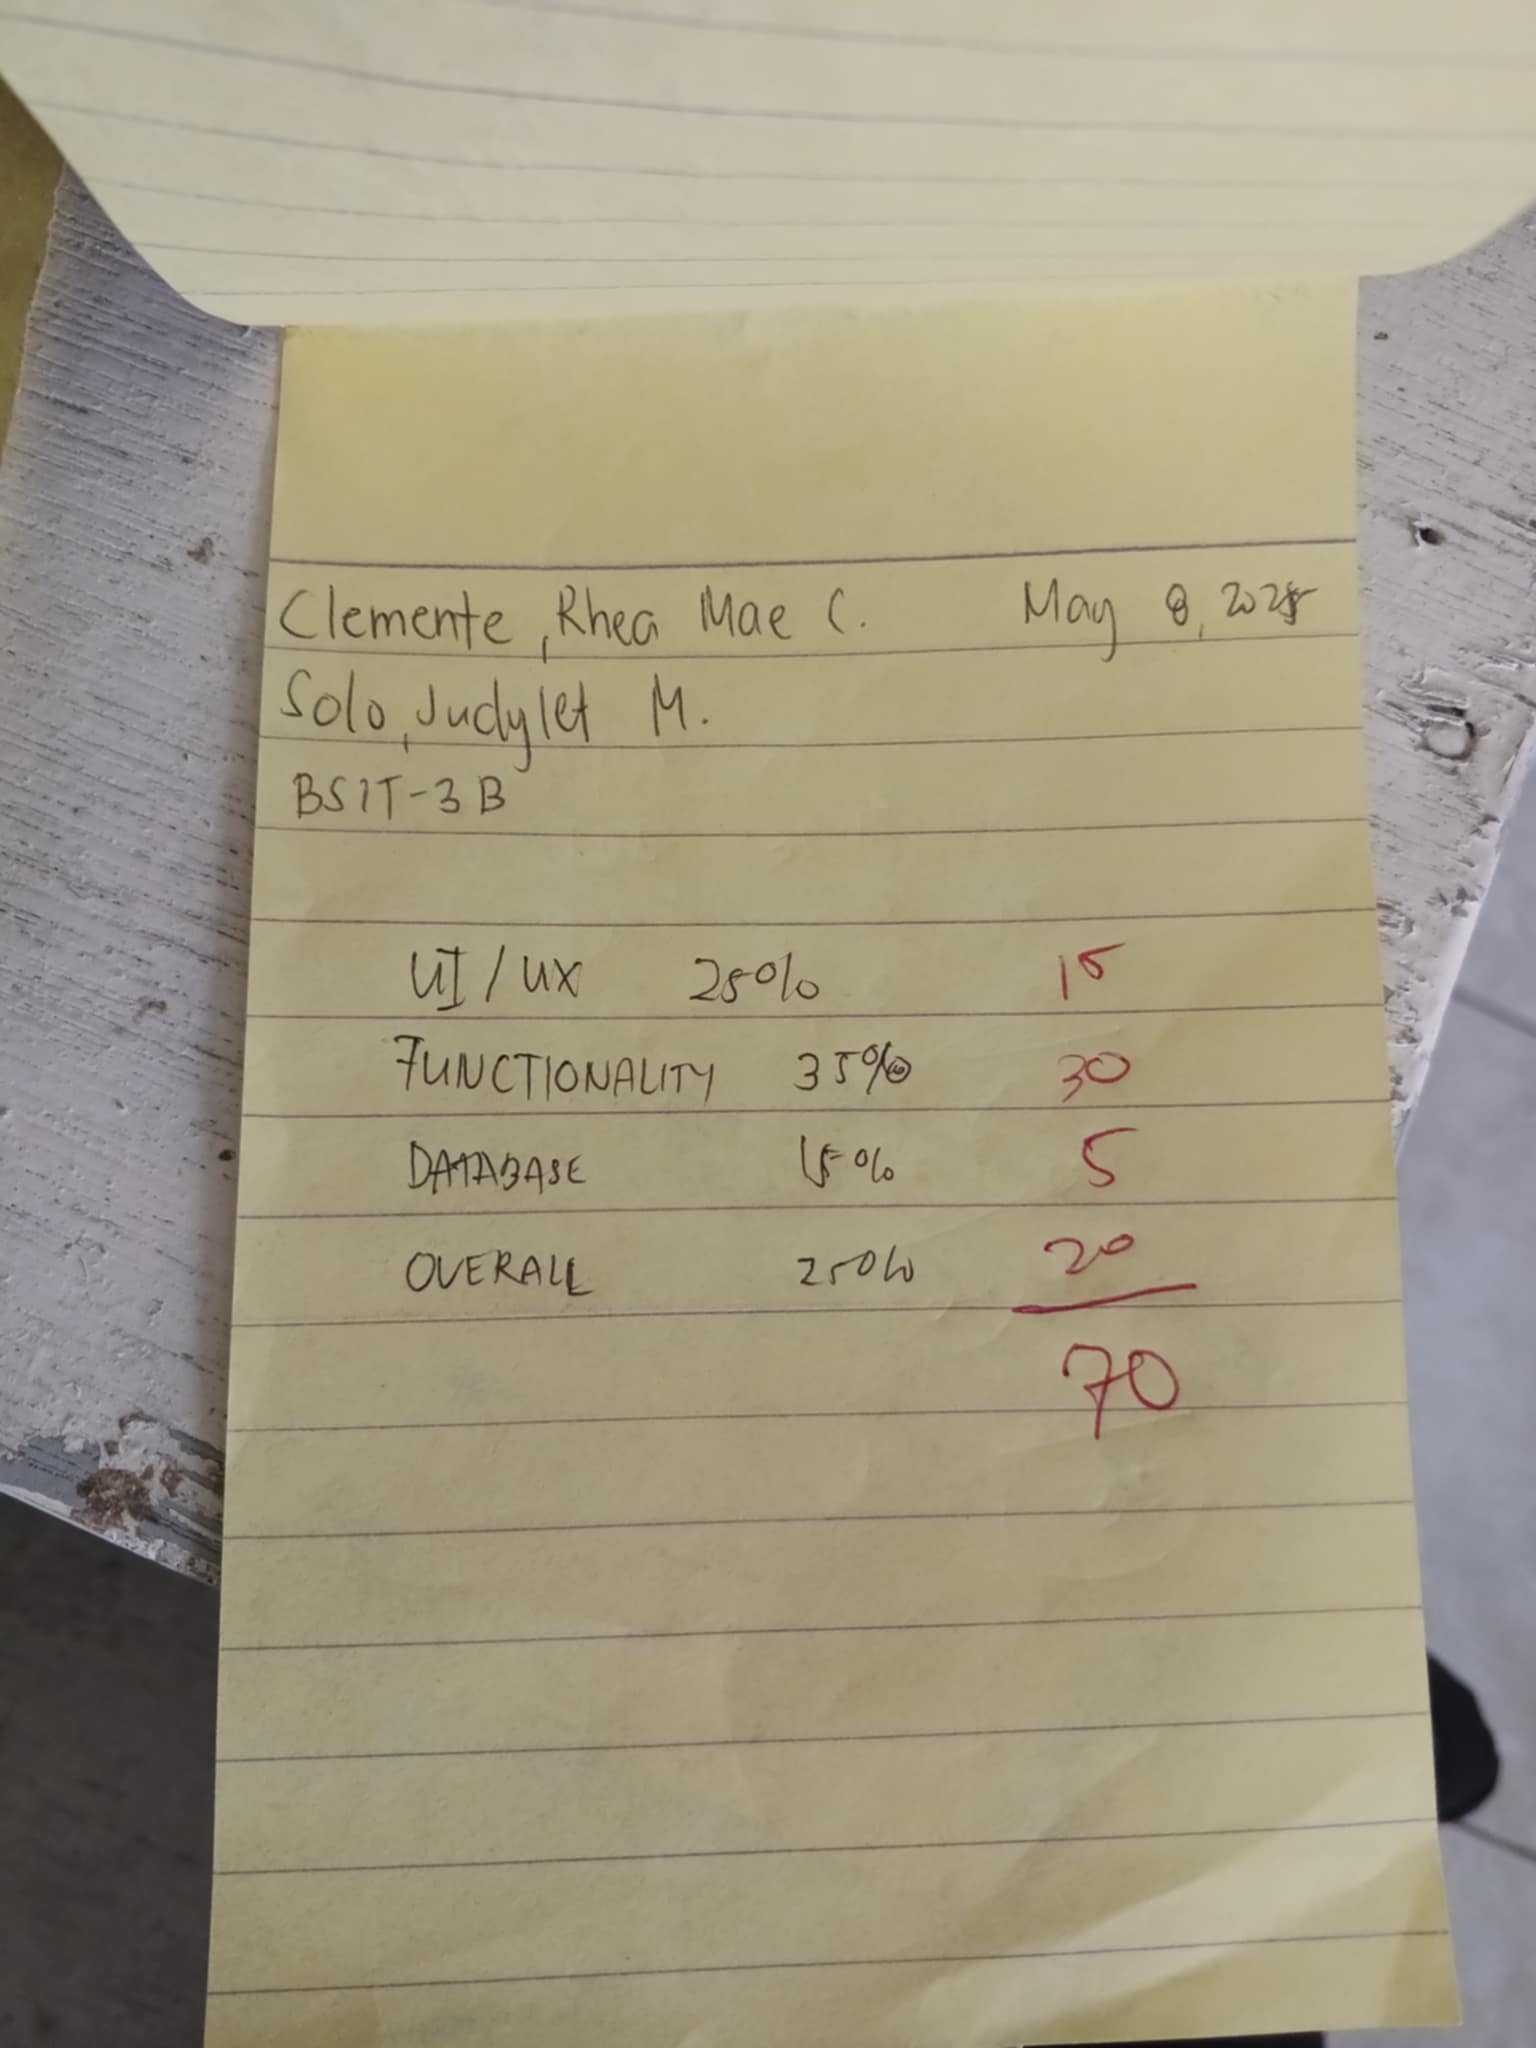 Clemente, Rhea Mae C. May 8, 2025
Solo, Judylet M.
BSIT-3B
UI/UX 25% 15
FUNCTIONALITY 35% 30
DATABASE 15% 5
OVERALL 25% 20
70